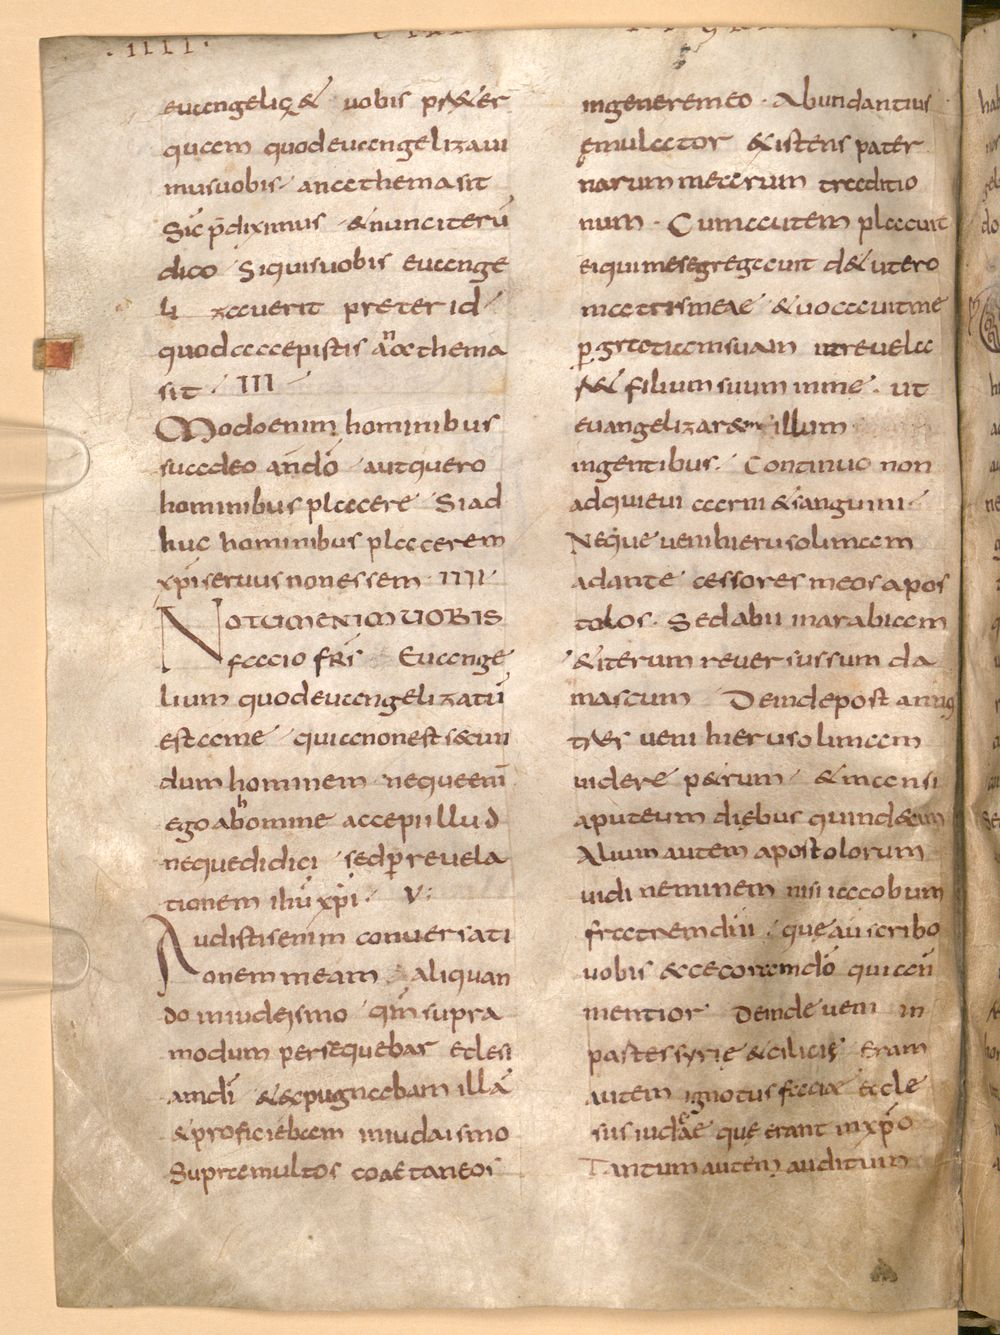 · IIII ·
euangelicę& uobis pr&er
quam quod euangelizaui
mus uobis anathema sit
Sic p̄diximus & nunc iterū
dico Siquis uobis euange
lizauerit preter id
quod accepistis anathema
sit · III
Modo enim hominibus
suadeo an dō aut quero
hominibus placere Si ad
huc hominibus placerem
xp̄i seruus non essem · IIII
NOTUM ENIM UOBIS
facio fr̄s Euange
lium quod euangelizatū
est a me quia non est secun
dum hominem neque enī
ego ab homine accepi illud
neque didici sed p reuela
tionem ihū xp̄i · V ·
Audistis enim conuersati
onem meam Aliquan
do in iudeismo qm̄ supra
modum persequebar eclesi
am dī & expugnabam illā
& proficiebam in iudaismo
Supra multos coaetaneos
in genere meo · Abundantius
ęmulator existens pater
narum mearum traditio
num · Cum autem placuit
ei qui me segregauit de utero
matris meae & uocauit me
p gratiam suam ut reuela
r& filium suum in me ut
euangelizarem illum
in gentibus · Continuo non
adquieui carni & sanguini
Neque ueni hierusolimam
ad antecessores meos apos
tolos · Sed abii in arabiam
& iterum reuersus sum da
mascum Deinde post annos
tres ueni hierusolimam
uidere petrum & mansi
apud eum diebus quindecim
Alium autem apostolorum
uidi neminem nisi iacobum
fratrem dn̄i que au scribo
uobis ecce coram dō quia n̄
mentior Deinde ueni in
partes syrię & cilicię Eram
autem ignotus facia eccle
siis iudae que erant in xp̄o
Tantum autem auditum